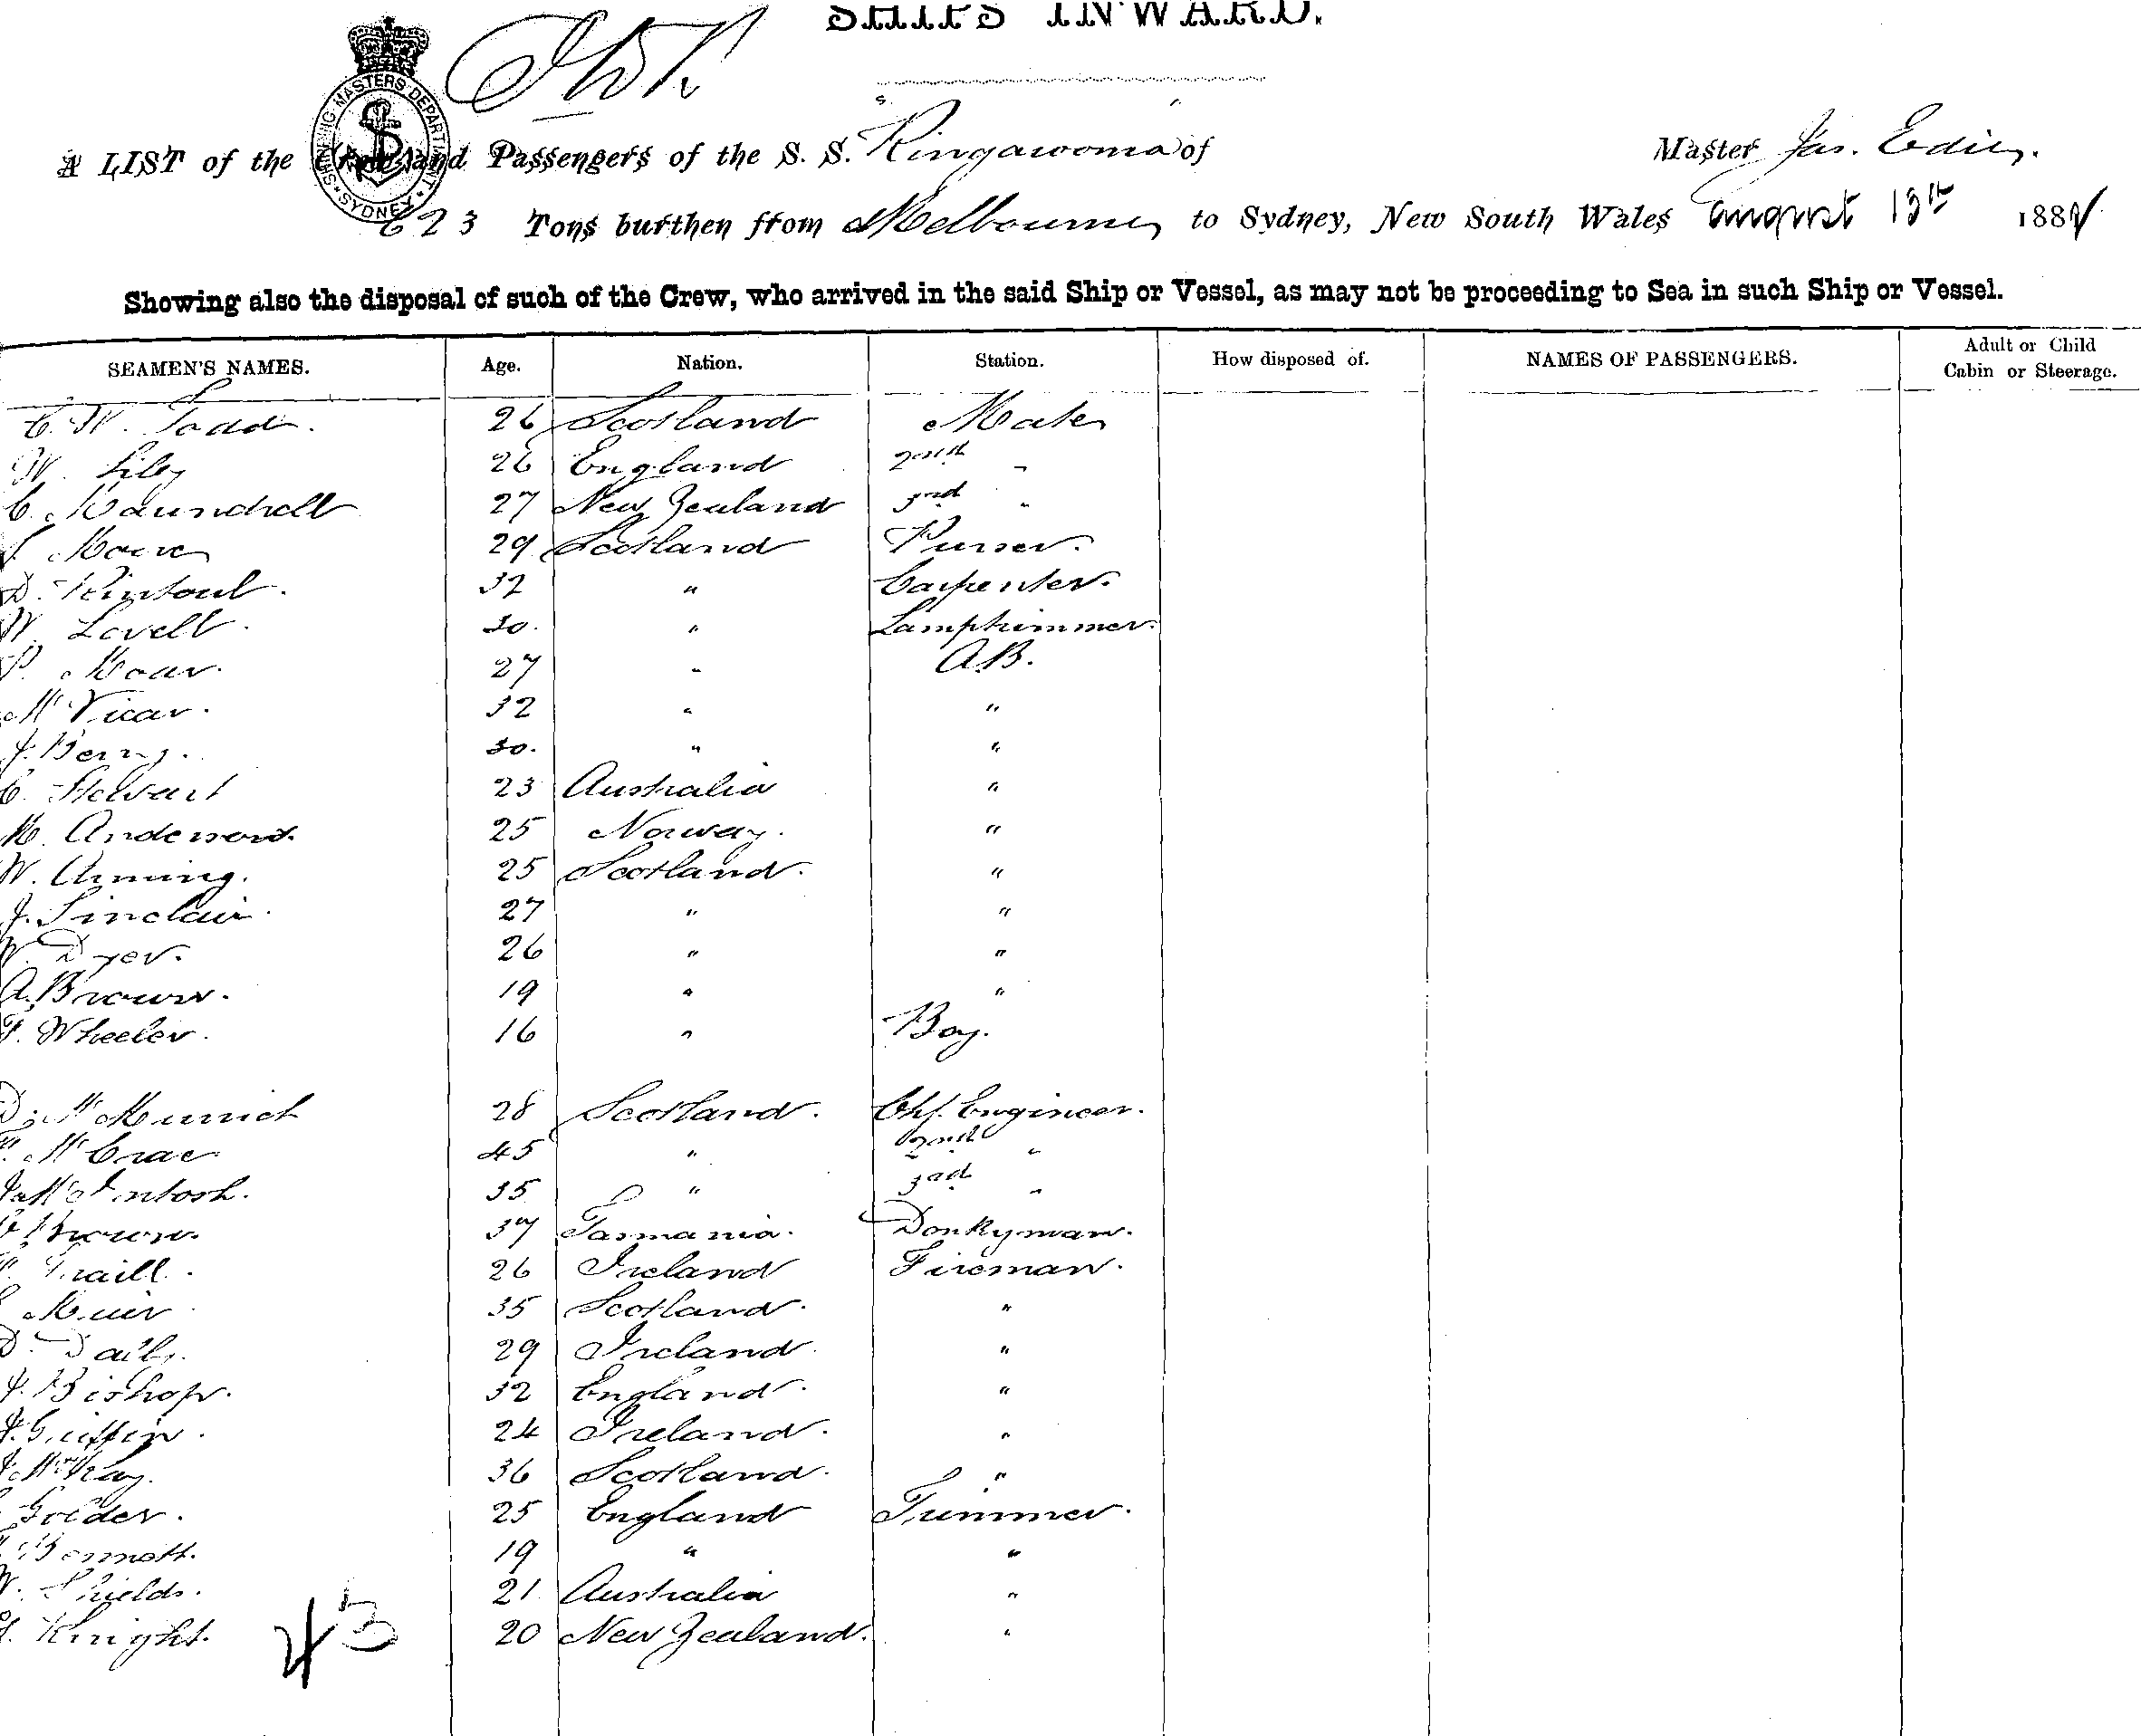 SHIPS INWARD.
SHIPPING MASTERS DEPARTMENT SYDNEY
A LIST of the Crew and Passengers of the S. S. "Ringarooma" of Master Jas. Edie.
623 Tons burthen from Melbourne to Sydney, New South Wales August 13th 188
Showing also the disposal of such of the Crew, who arrived in the said Ship or Vessel, as may not be proceeding to Sea in such Ship or Vessel.
SEAMEN'S NAMES. Age. Nation. Station. How disposed of. NAMES OF PASSENGERS. Adult or Child Cabin or Steerage.
C. W. Todd. 26 Scotland Mate
W. 26 England 2nd "
C. Maundrell 27 New Zealand 3rd "
29 Scotland Purser.
D. Rintoul. 32 " Carpenter.
W. Lovell. 30. " Lamptrimmer.
P. Moar. 27 " A.B.
McVicar. 32 " "
J. Berry. 30. " "
C. Stewart 23 Australia "
M. Anderson. 25 Norway. "
W. 25 Scotland. "
J. Sinclair. 27 " "
W. Dyer. 26 " "
A. Brown. 19 " "
F. Wheeler. 16 " Boy.
D. McMurrich 28 Scotland. Chf. Engineer.
McCrae 45 " 2nd "
J. McIntosh. 35 " 3rd "
Brown. 37 Tasmania. Donkyman.
Traill. 26 Ireland Fireman.
Muir 35 Scotland. "
D. Daily. 29 Ireland. "
J. Bishop. 32 England. "
J. Griffin. 24 Ireland. "
J. McKay. 36 Scotland. "
Golder. 25 England Trimmer.
Bennett. 19 " "
W. Shields. 21 Australia "
Knight. 20 New Zealand. "
43